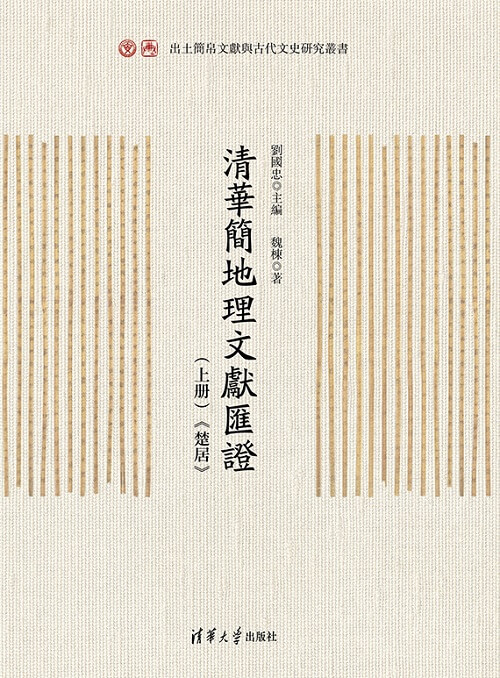 出土簡帛文獻與古代文史研究叢書
劉國忠◎主編 魏棟◎著
清華簡地理文獻匯證
（上册）《楚居》
清華大学出版社